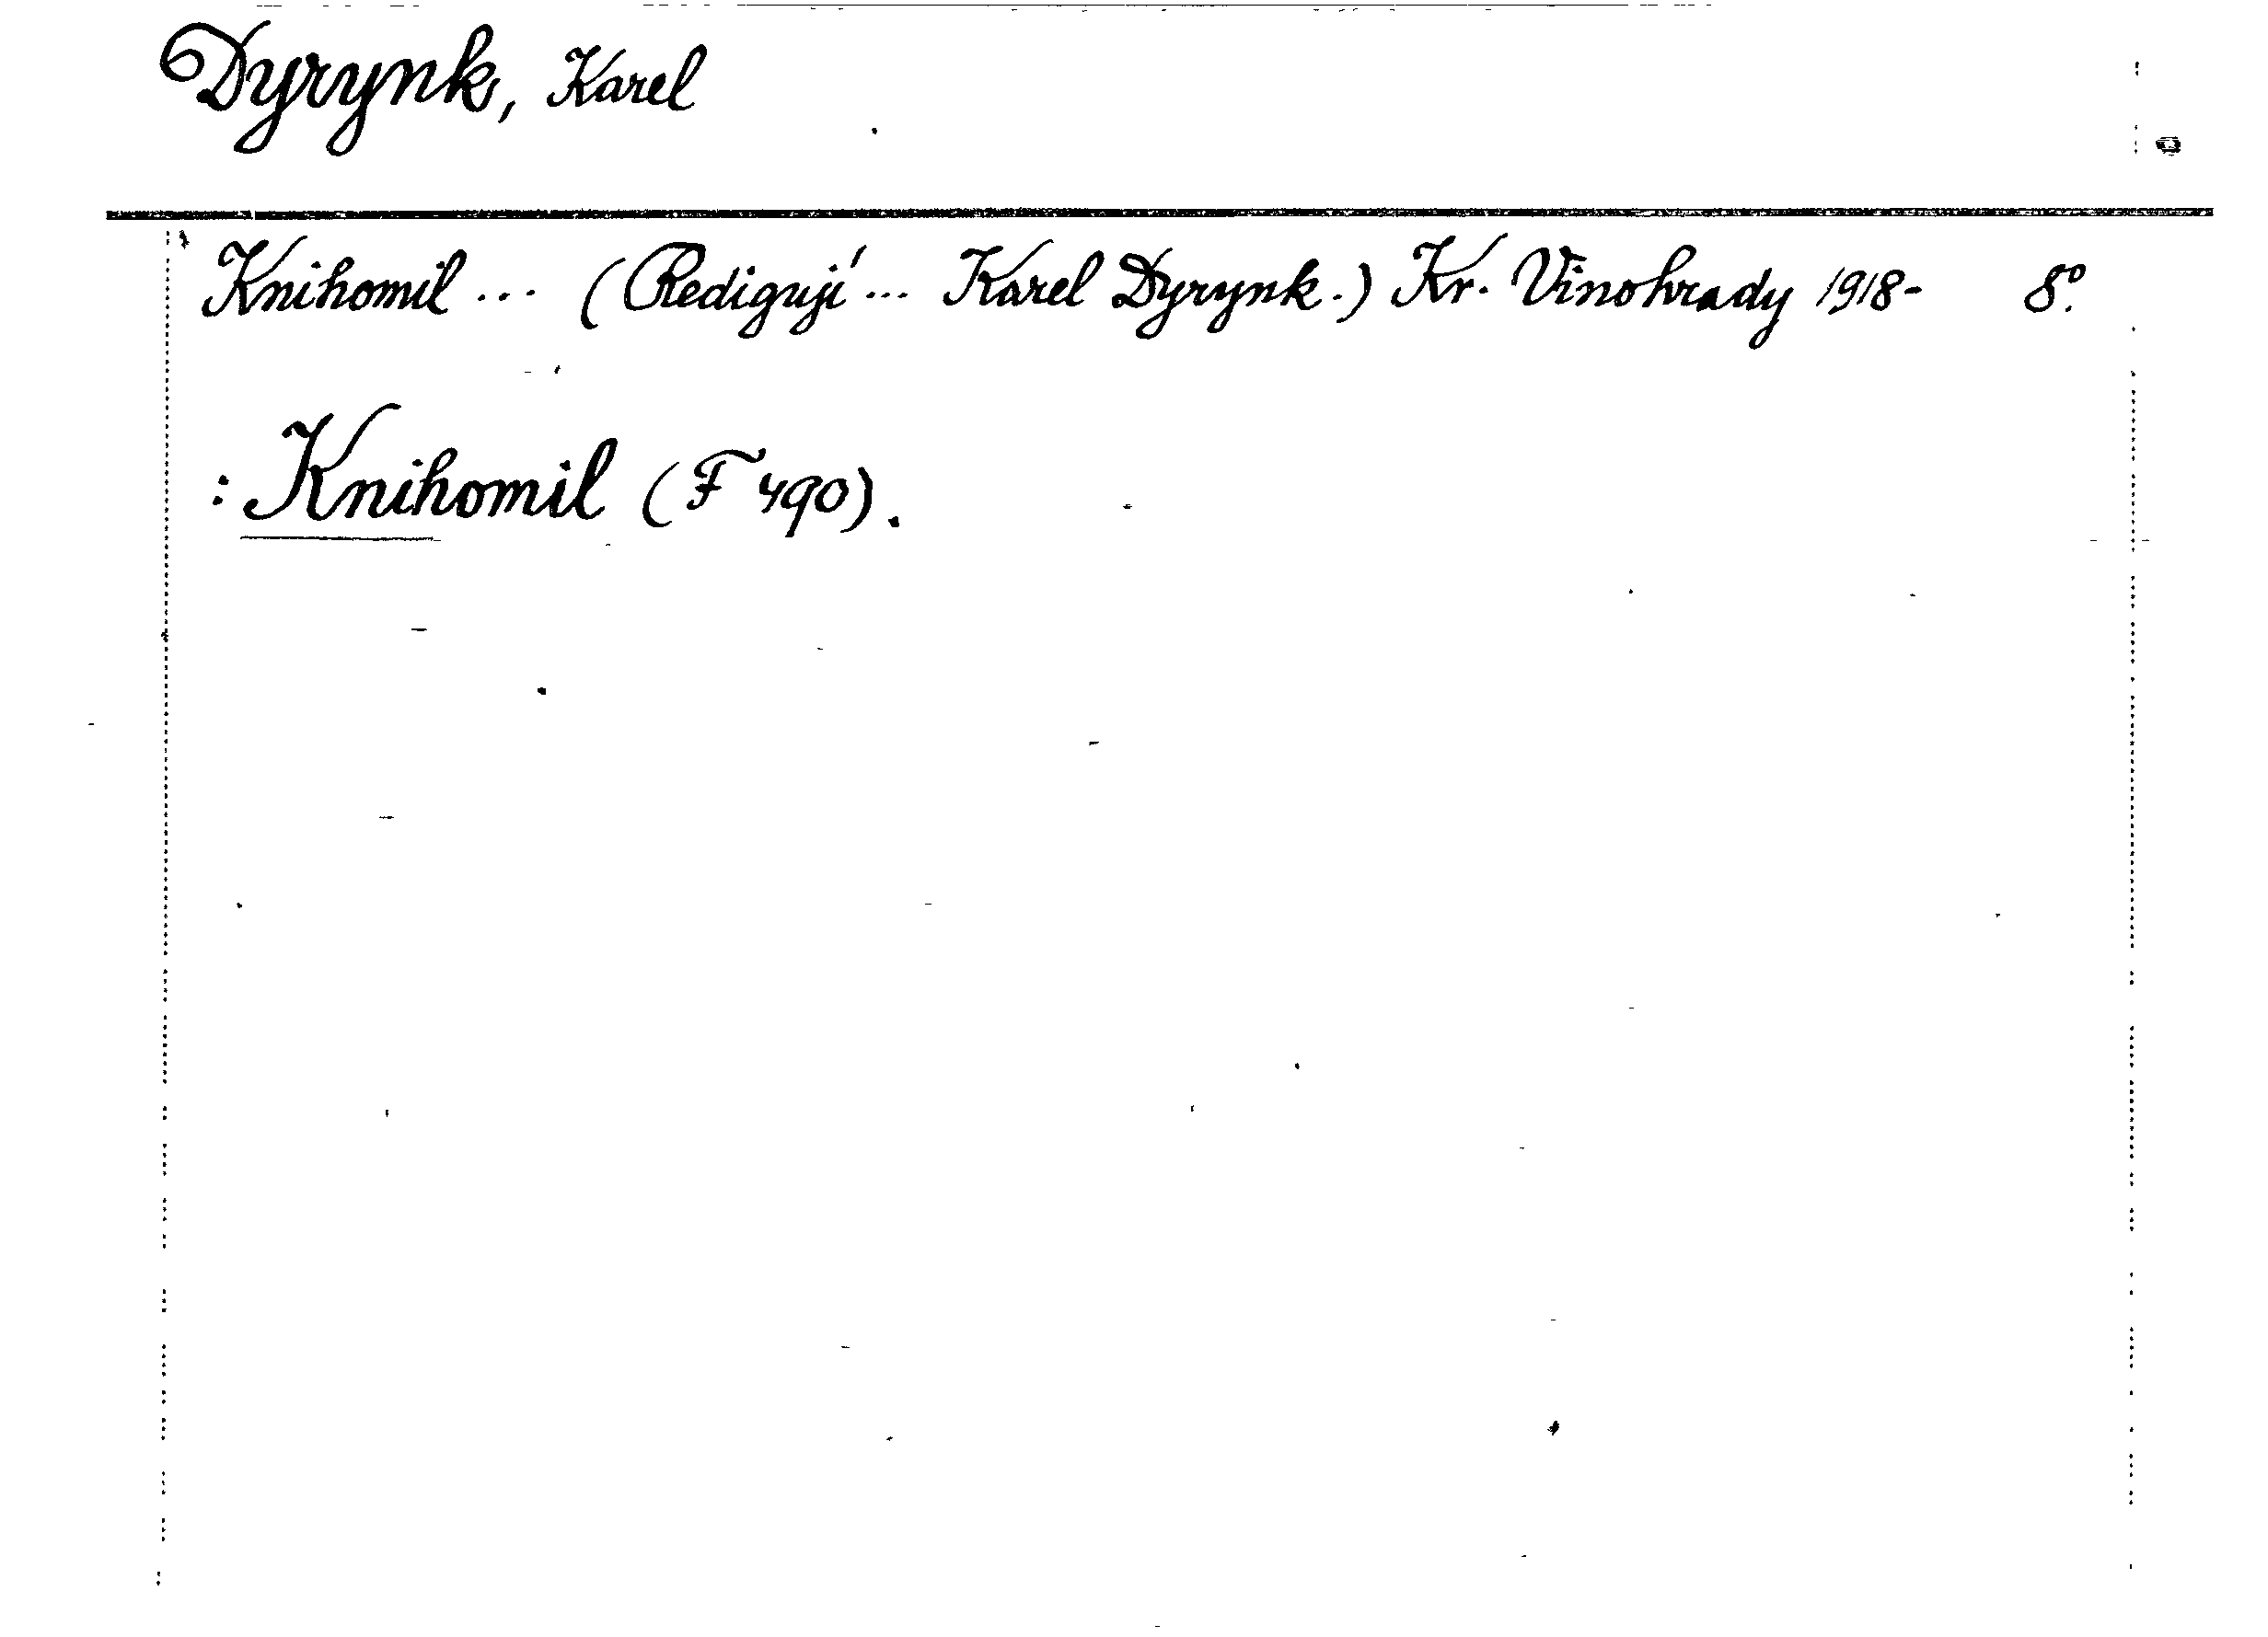 Dyrynk, Karel
Knihomil ... (Redigují ... Karel Dyrynk.) Kr. Vinohrady 1918- 8°.
: Knihomil (F 490).